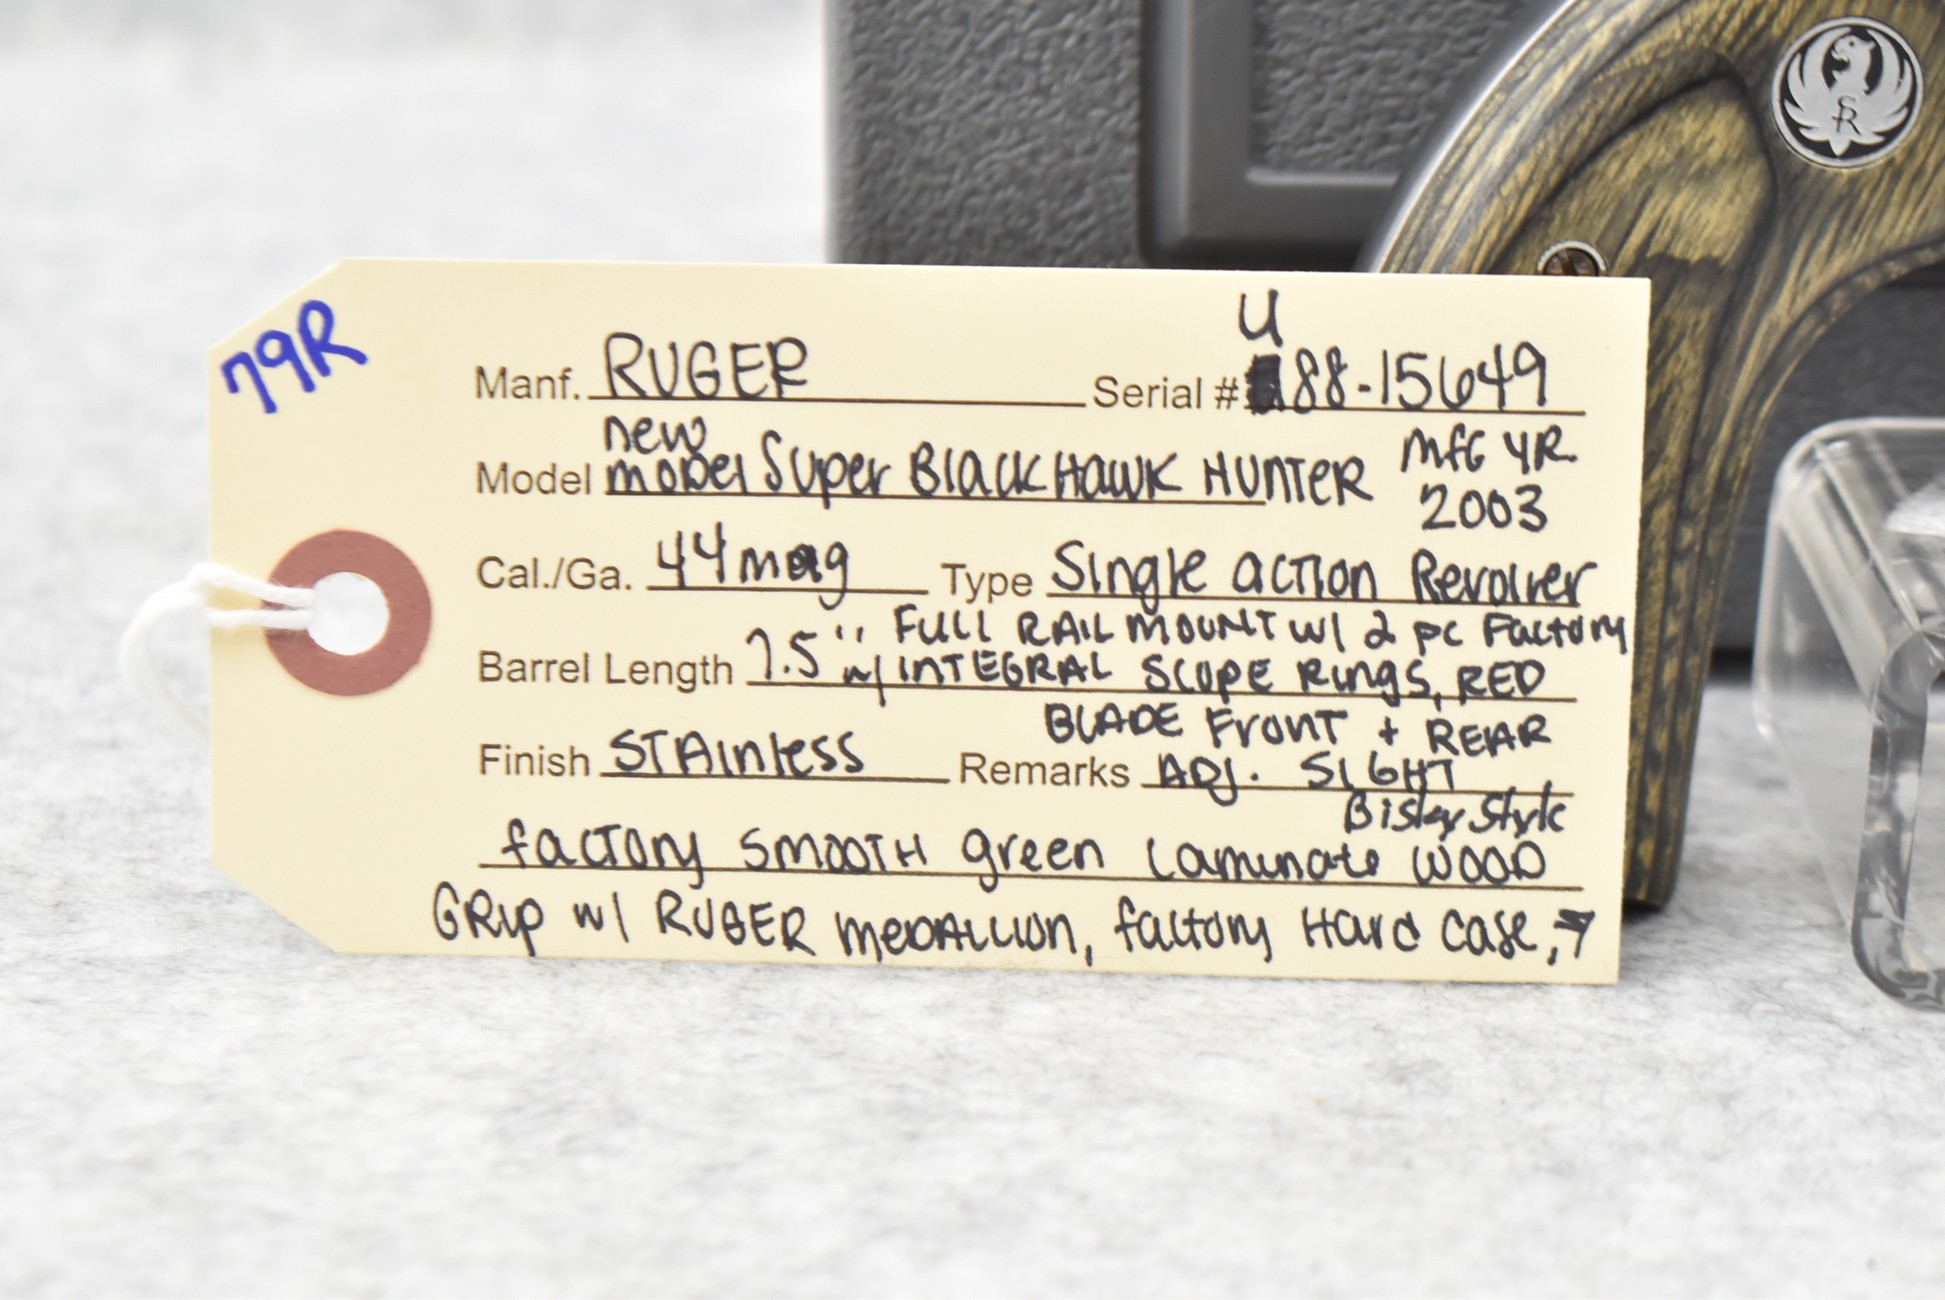 79R
Manf. RUGER Serial # U 88-15649
new
Model model Super Blackhawk Hunter MFG YR.
2003
Cal./Ga. 44 mag Type Single action Revolver
FULL RAIL MOUNT w/ 2 pc Factory
Barrel Length 7.5" w/ INTEGRAL SCOPE Rings, RED
BLADE FRONT + REAR
Finish STAInless Remarks ADJ. SIGHT
Bisley Style
factory smooth green Laminate WOOD
GRIP w/ RUGER medallion, factory Hard case,
SR